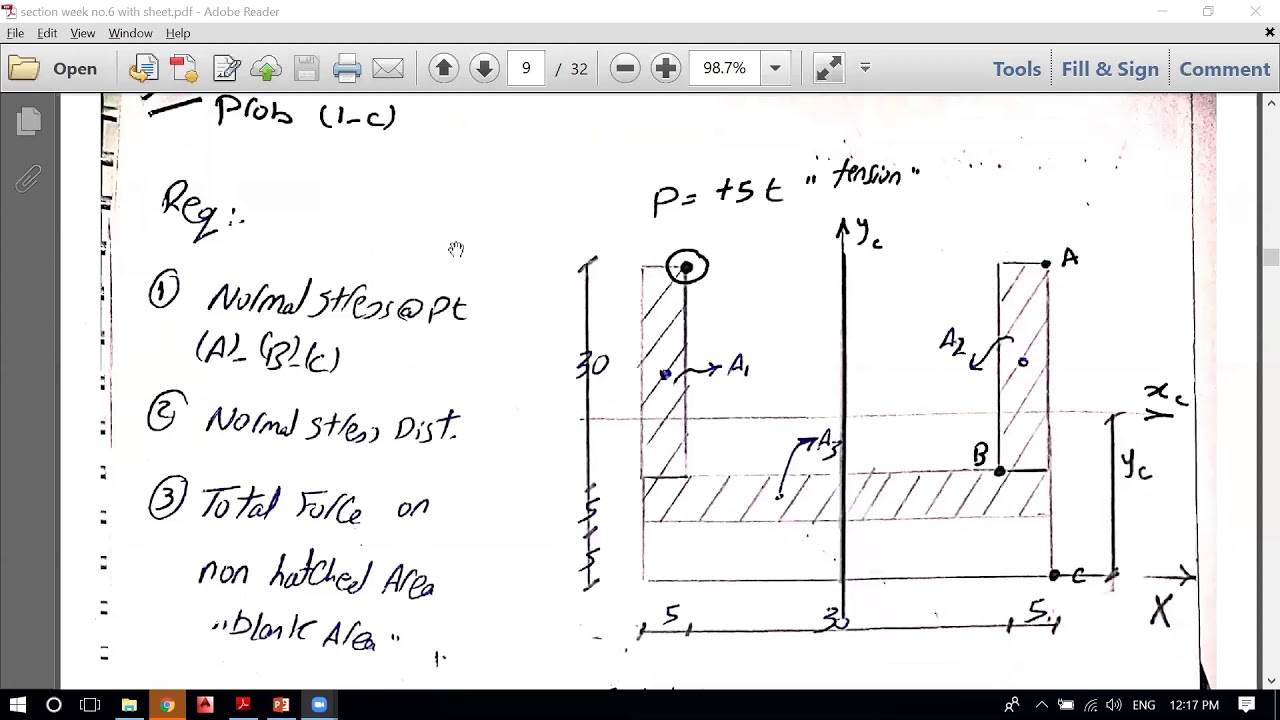 section week no.6 with sheet.pdf - Adobe Reader
File Edit View Window Help
Open 9 / 32 98.7% Tools Fill & Sign Comment
Prob (1-c)
Req:
① Normal stress @ Pt
(A)-(B)-(c)
② Normal stress Dist.
③ Total Force on
non hatched Area
"blank Area"
P = +5 t "tension"
yc
A
A1
A2
30
xc
A3
B
yc
5
5
C
X
5
30
5
ENG 12:17 PM